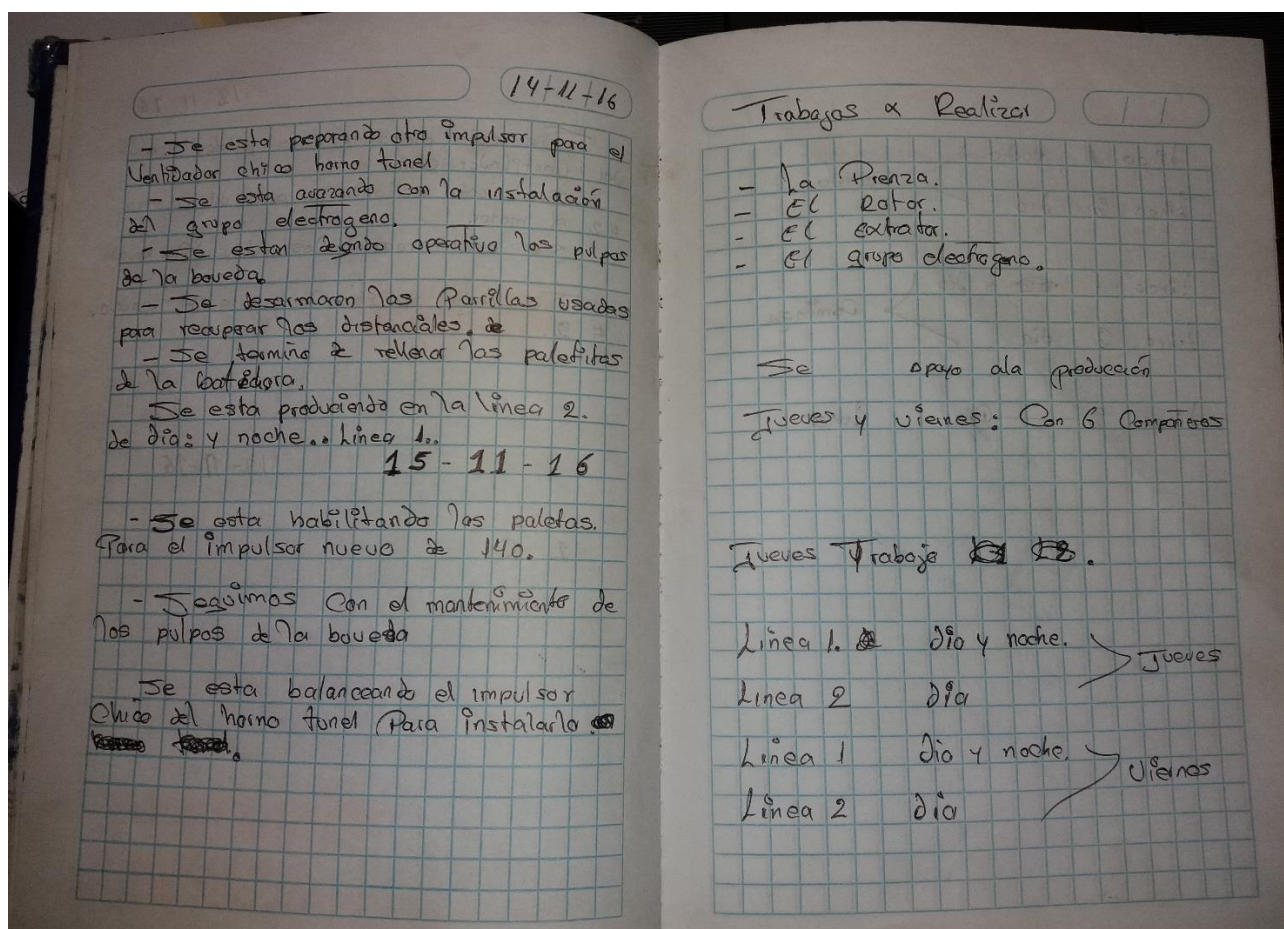 14-11-16
- Se esta preparando otro impulsor para el
Ventidador chico horno tunel
- Se esta avazando con la instalación
del grupo electrogeno.
- Se estan degndo operativo los pulpos
de la boveda
- Se desarmaron las Parrillas usadas
para recuperar los distanciales.
- Se termino de rellenar las paletitas
de la batidora.
Se esta produciendo en la línea 2.
de día: y noche.. Línea 1..
15-11-16
- Se esta habilitando las paletas.
Para el impulsor nuevo de 140.
- Seguimos Con el mantenimiento de
los pulpos de la boveda
Se esta balanceando el impulsor
Chico del horno tunel Para instalarlo.
Trabajos a Realizar
- La Prenza.
- El Rotor.
- El extrator.
- El grupo electrogeno.
Se apoyo ala producción
Jueves y viernes: Con 6 Compañeros
Jueves Trabajo
Linea 1. dia y noche.
Jueves
Linea 2 dia
Linea 1 dio y noche.
Viernes
Linea 2 dia